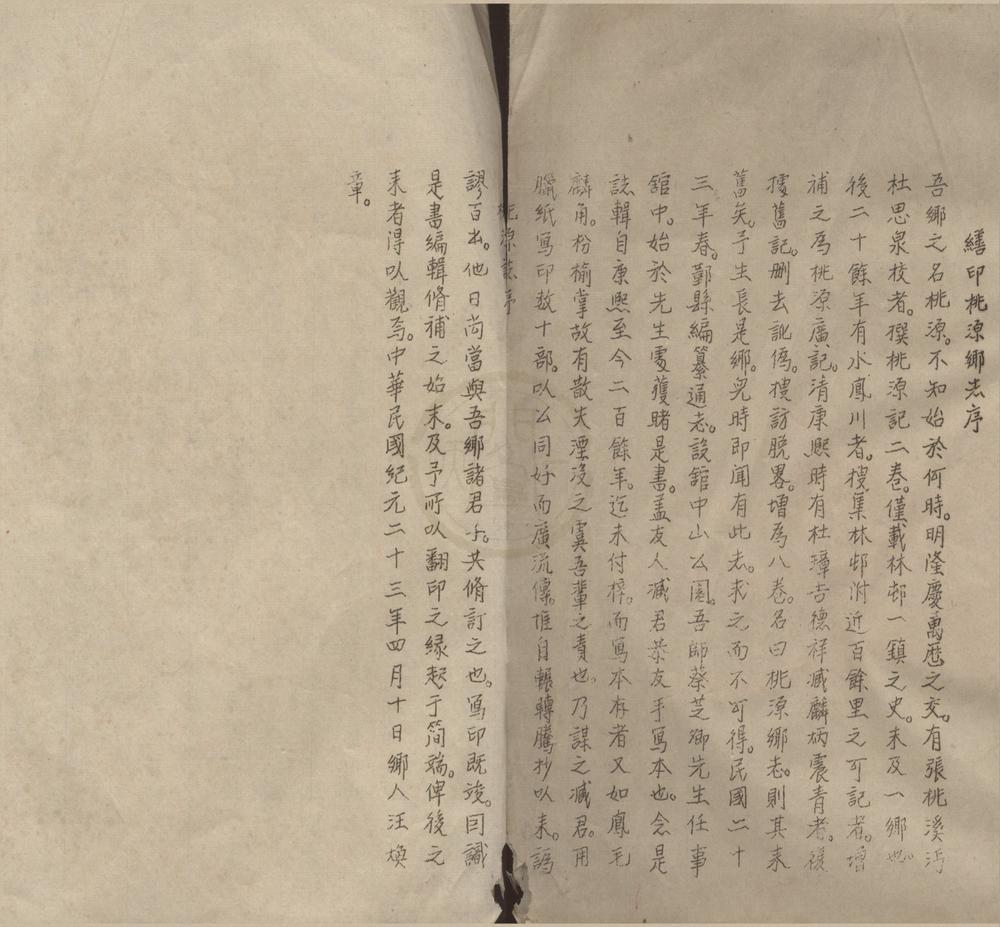 繕印桃源鄉志序
吾鄉之名桃源。不知始於何時。明隆慶萬歷之交。有張桃溪沔
杜思泉校者。撰桃源記二卷。僅載林邨一鎮之史。未及一鄉也。
後二十餘年有水鳳川者。搜集林邨附近百餘里之可記者。增
補之爲桃源廣記。清康熙時有杜璋吉德祥臧麟炳震青者。複
據舊記。删去訛僞。搜訪脫畧。增爲八卷。名曰桃源鄉志。則其來
舊矣。予生長是鄉。兒時即聞有此志。求之而不可得。民國二十
三年春。鄞縣編纂通志。設館中山公園。吾師蔡芝卿先生任事
館中。始於先生處獲睹是書。盖友人臧君恭友手寫本也。念是
誌輯自康熙至今二百餘年。迄未付梓。而寫本存者又如鳳毛
麟角。枌榆掌故有散失湮沒之虞吾輩之責也。乃謀之臧君。用
臘紙寫印数十部。以公同好而廣流傳。惟自輾轉騰抄以來。譌
桃源誌序
謬百出。他日尚當與吾鄉諸君子。共脩訂之也。寫印既竣。囙識
是書編輯脩補之始末。及予所以翻印之緣起于简端。俾後之
来者得以觀焉。中華民國紀元二十三年四月十日鄉人汪煥
章。